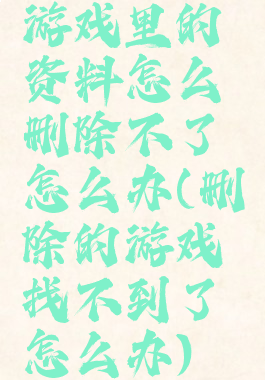 游戏里的
资料怎么
删除不了
怎么办(删
除的游戏
找不到了
怎么办)